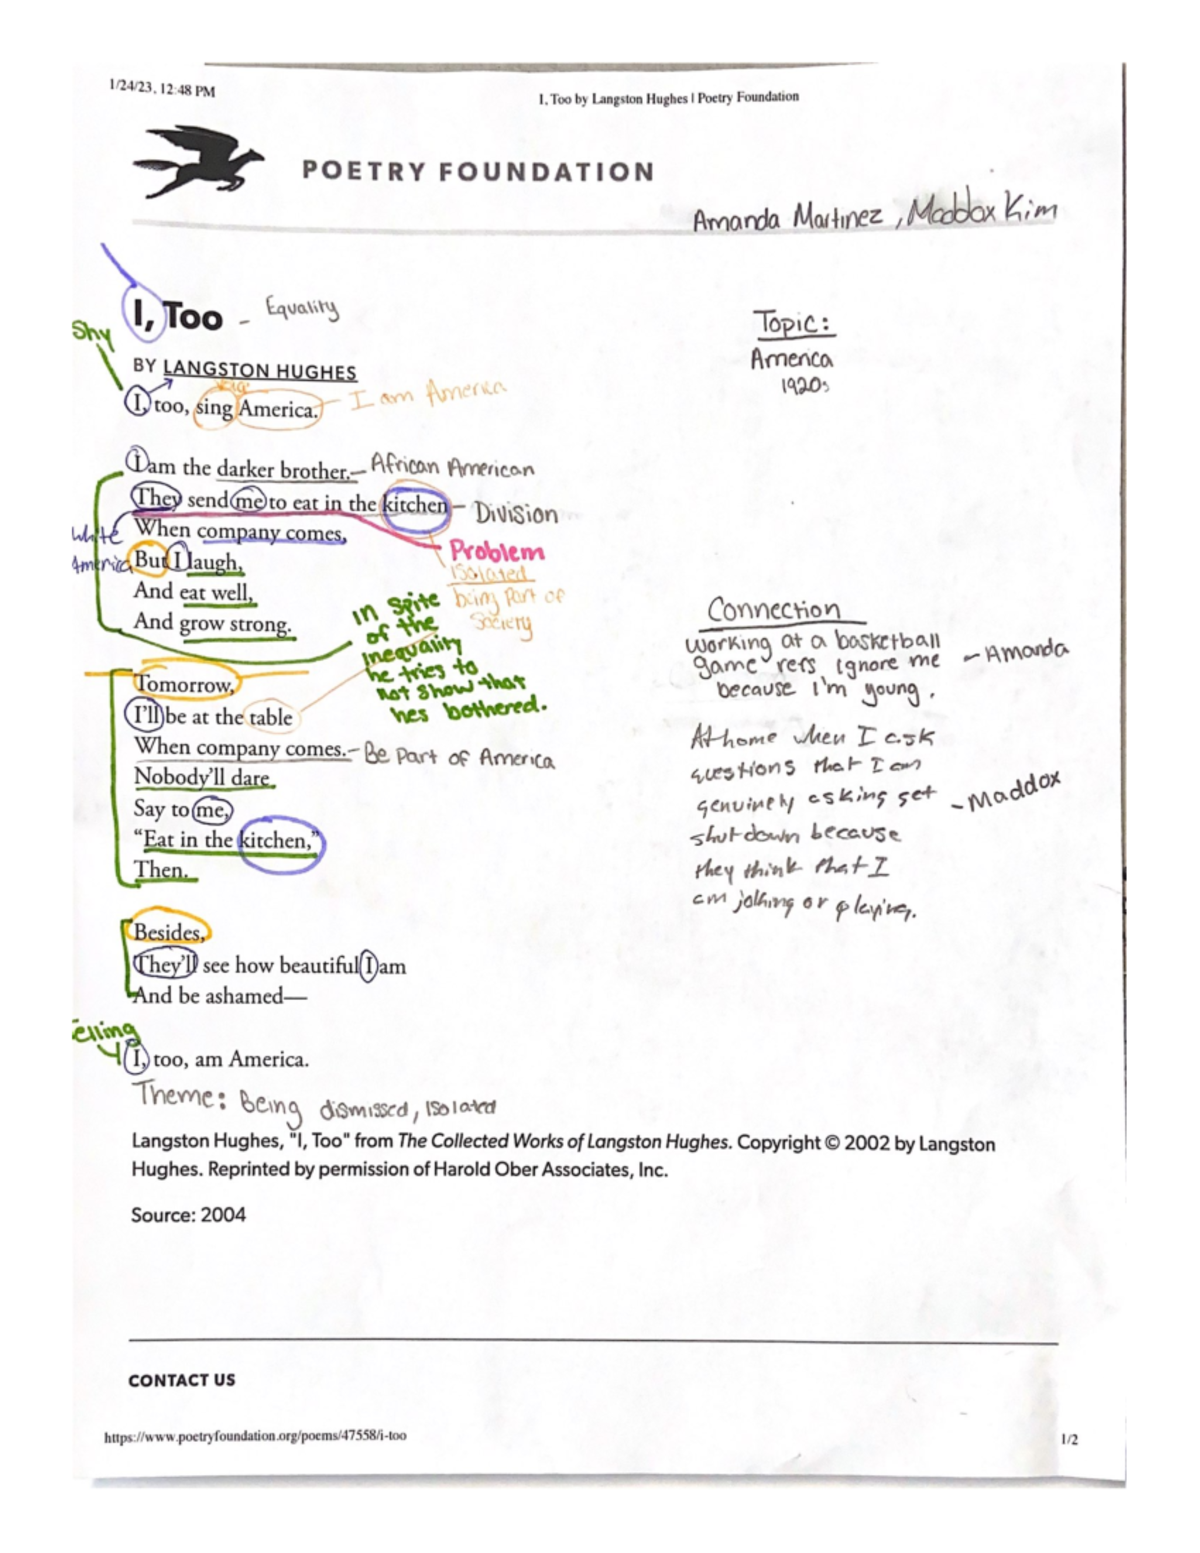 1/24/23, 12:48 PM
I, Too by Langston Hughes | Poetry Foundation
POETRY FOUNDATION
Amanda Martinez, Maddox Kim
I, Too - Equality
Shy
BY LANGSTON HUGHES
I, too, sing America. - I am America
I am the darker brother. - African American
They send me to eat in the kitchen - Division
When company comes,
White
America
But I laugh,
And eat well,
And grow strong.
Problem
Isolated
being part of
Society
In spite
of the
inequality
he tries to
not show that
hes bothered.
Tomorrow,
I'll be at the table
When company comes. - Be Part of America
Nobody'll dare
Say to me,
"Eat in the kitchen,"
Then.
Besides,
They'll see how beautiful I am
And be ashamed—
elling
I, too, am America.
Theme: Being dismissed, Isolated
Topic:
America
1920s
Connection
working at a basketball
game refs ignore me - Amanda
because I'm young.
At home when I ask
questions that I am
genuinely asking get - Maddox
shutdown because
they think that I
am jolking or playing.
Langston Hughes, "I, Too" from The Collected Works of Langston Hughes. Copyright © 2002 by Langston
Hughes. Reprinted by permission of Harold Ober Associates, Inc.
Source: 2004
CONTACT US
https://www.poetryfoundation.org/poems/47558/i-too
1/2